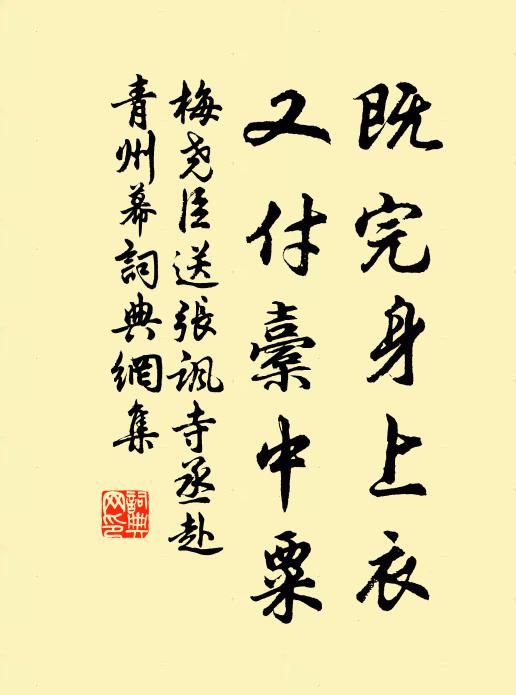 既完身上衣
又付橐中粟
梅尧臣送張諷寺丞赴
青州幕詞典網集
詞典
网印